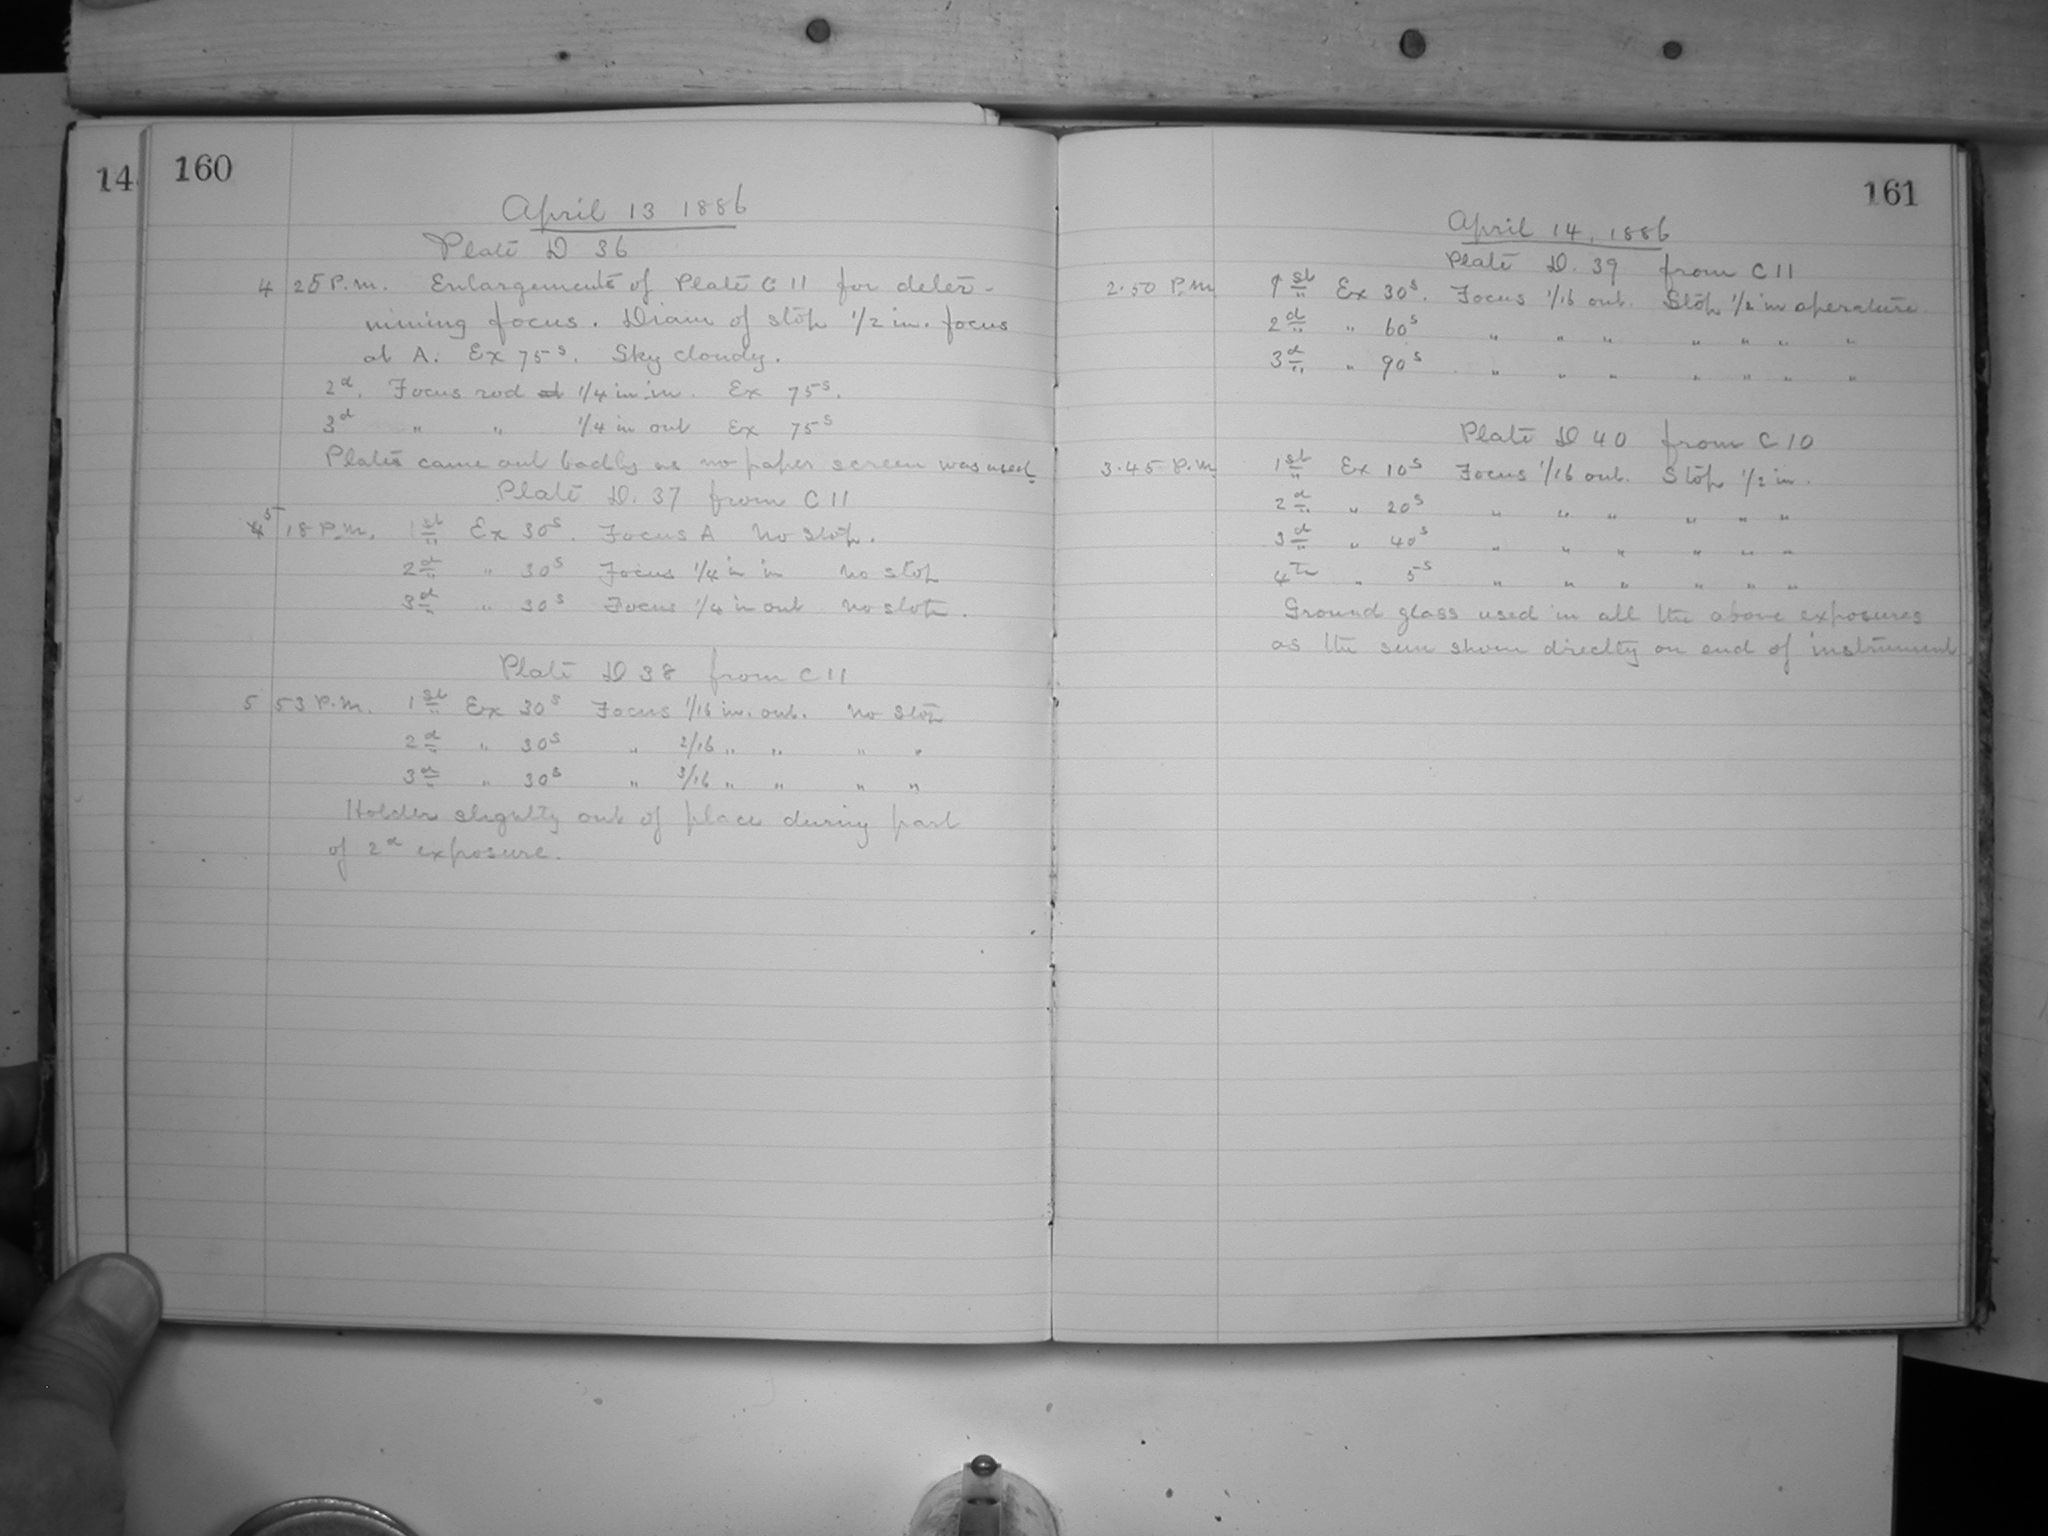 14
160
April 13 1886
Plate D 36
4 25 P.m. Enlargements of Plate C 11 for deter-
mining focus. Diam of stop 1/2 in. focus
at A. Ex 75s. Sky cloudy.
2d. Focus rod at 1/4 in in. Ex 75s.
3d " " 1/4 in out Ex 75s
Plates came out badly as no paper screen was used.
Plate D. 37 from C 11
5 18 P.m. 1st Ex 30s. Focus A No stop.
2d " 30s Focus 1/4 in in No stop
3d " 30s Focus 1/4 in out No stop.
Plate D 38 from C 11
5 53 P.m. 1st Ex 30s Focus 1/16 in. out. No stop
2d " 30s " 2/16 " " " "
3d " 30s " 3/16 " " " "
Holder slightly out of place during part
of 2d exposure.
161
April 14, 1886
Plate D. 39 from C 11
2.50 P.m 1st Ex 30s. Focus 1/16 out. Stop 1/2 in aperature
2d " 60s " " " " " " "
3d " 90s " " " " " " "
Plate D 40 from C 10
3.45 P.m 1st Ex 10s Focus 1/16 out. Stop 1/2 in.
2d " 20s " " " " " "
3d " 40s " " " " " "
4th " 5s " " " " " "
Ground glass used in all the above exposures
as the sun shone directly on end of instrument.